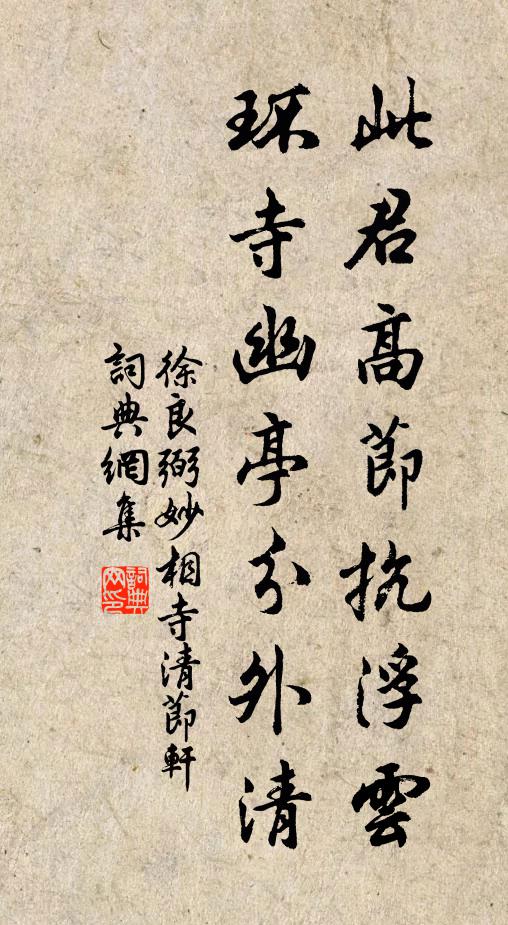 此君高節抗浮雲
琳寺幽亭分外清
徐良弼妙相寺清節軒
詞典網集
詞典
网印